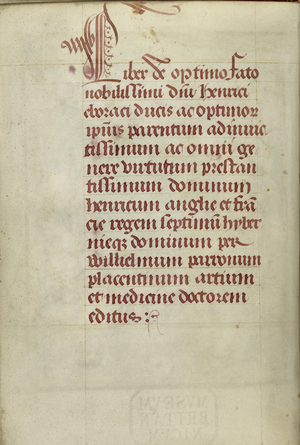 Liber de optimo fato
nobilissimi dni henrici
eboraci ducis ac optimor
ipsius parentum ad inuic
tissimum ac omni ge
nere virtutum prestan
tissimum dominum
henricum anglie et frā
cie regem septimū hyber
nieqz dominum per
Willielmum parronum
placentinum artium
et medicine doctorem
editus :
MVSEVM